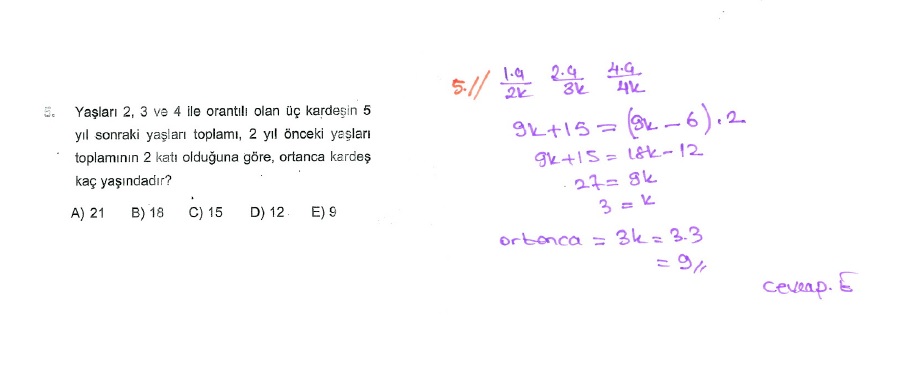 5. Yaşları 2, 3 ve 4 ile orantılı olan üç kardeşin 5
yıl sonraki yaşları toplamı, 2 yıl önceki yaşları
toplamının 2 katı olduğuna göre, ortanca kardeş
kaç yaşındadır?
A) 21 B) 18 C) 15 D) 12 E) 9
5.// 1.a/2k 2.a/3k 4.a/4k
9k+15 = (9k-6).2
9k+15 = 18k-12
27 = 9k
3 = k
ortanca = 3k = 3.3
= 9//
cevap. E